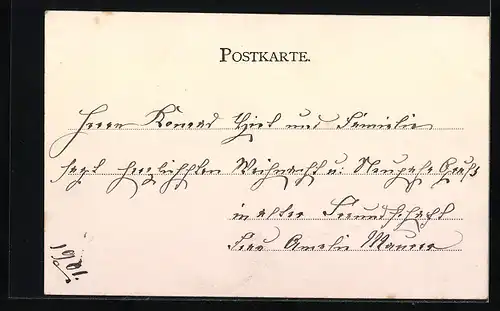 POSTKARTE.
Herrn Konrad und Familie
sagt herzlichsten Weihnacht u: Neujahr Gruß
in alter Freundschaft
Frau Amalie Maurer